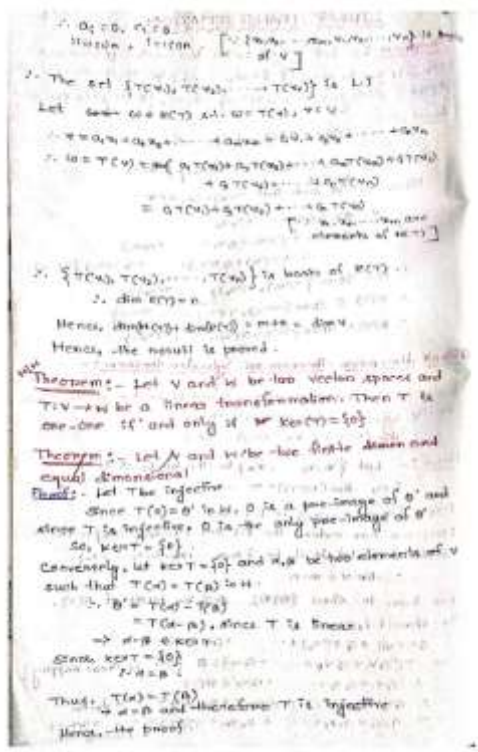 ∴ a₁ = 0, c₁ = 0
of V ]
∴ The set {T(v₁), T(v₂), ······ T(vₙ)} is L.I
Let ω ∈ R(T) s.t. ω = T(v), v ∈ V.
∴ ω = T(v) = a₁T(u₁)+a₂T(u₂)+ ··· + aₘT(uₘ)+c₁T(v₁)
+ c₂T(v₂)+ ··· + cₙT(vₙ)
= c₁T(v₁)+c₂T(v₂)+ ··· + cₙT(vₙ)
elements of
∴ {T(v₁), T(v₂), ······, T(vₙ)} is basis of R(T)
∴ dim R(T) = n
Hence, = m+n = dim V.
Hence, the result is proved.
Theorem :- Let V and W be two vector spaces and
T: V → W be a linear transformation. Then T is
one-one if and only if Ker(T) = {0}
Theorem :- Let V and W be two finite dimen and
equal dimensional
Proof :- Let T be injective
Since T(0) = θ' in W, 0 is a pre-image of θ' and
since T is injective, 0 is the only pre-image of θ'
So, Ker T = {0}.
Conversely, let Ker T = {0} and α, β be two elements of V
such that T(α) = T(β) in W.
∴ θ' = T(α) - T(β)
= T(α-β), since T is linear.
⇒ α-β ∈ Ker T.
Since Ker T = {0}
∴ α = β.
Thus, T(α) = T(β)
⇒ α = β and therefore T is injective.
Hence, the proof.